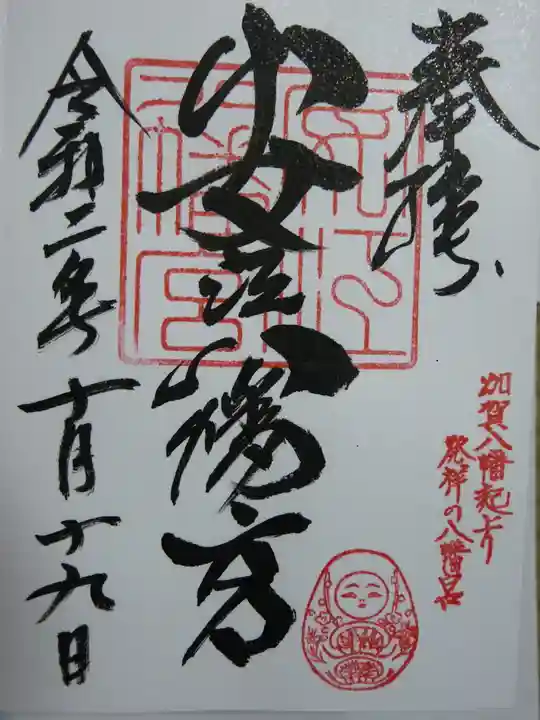 奉拝
加賀八幡起上り
発祥の八幡宮
小安江八幡宮
令和二年十月十九日